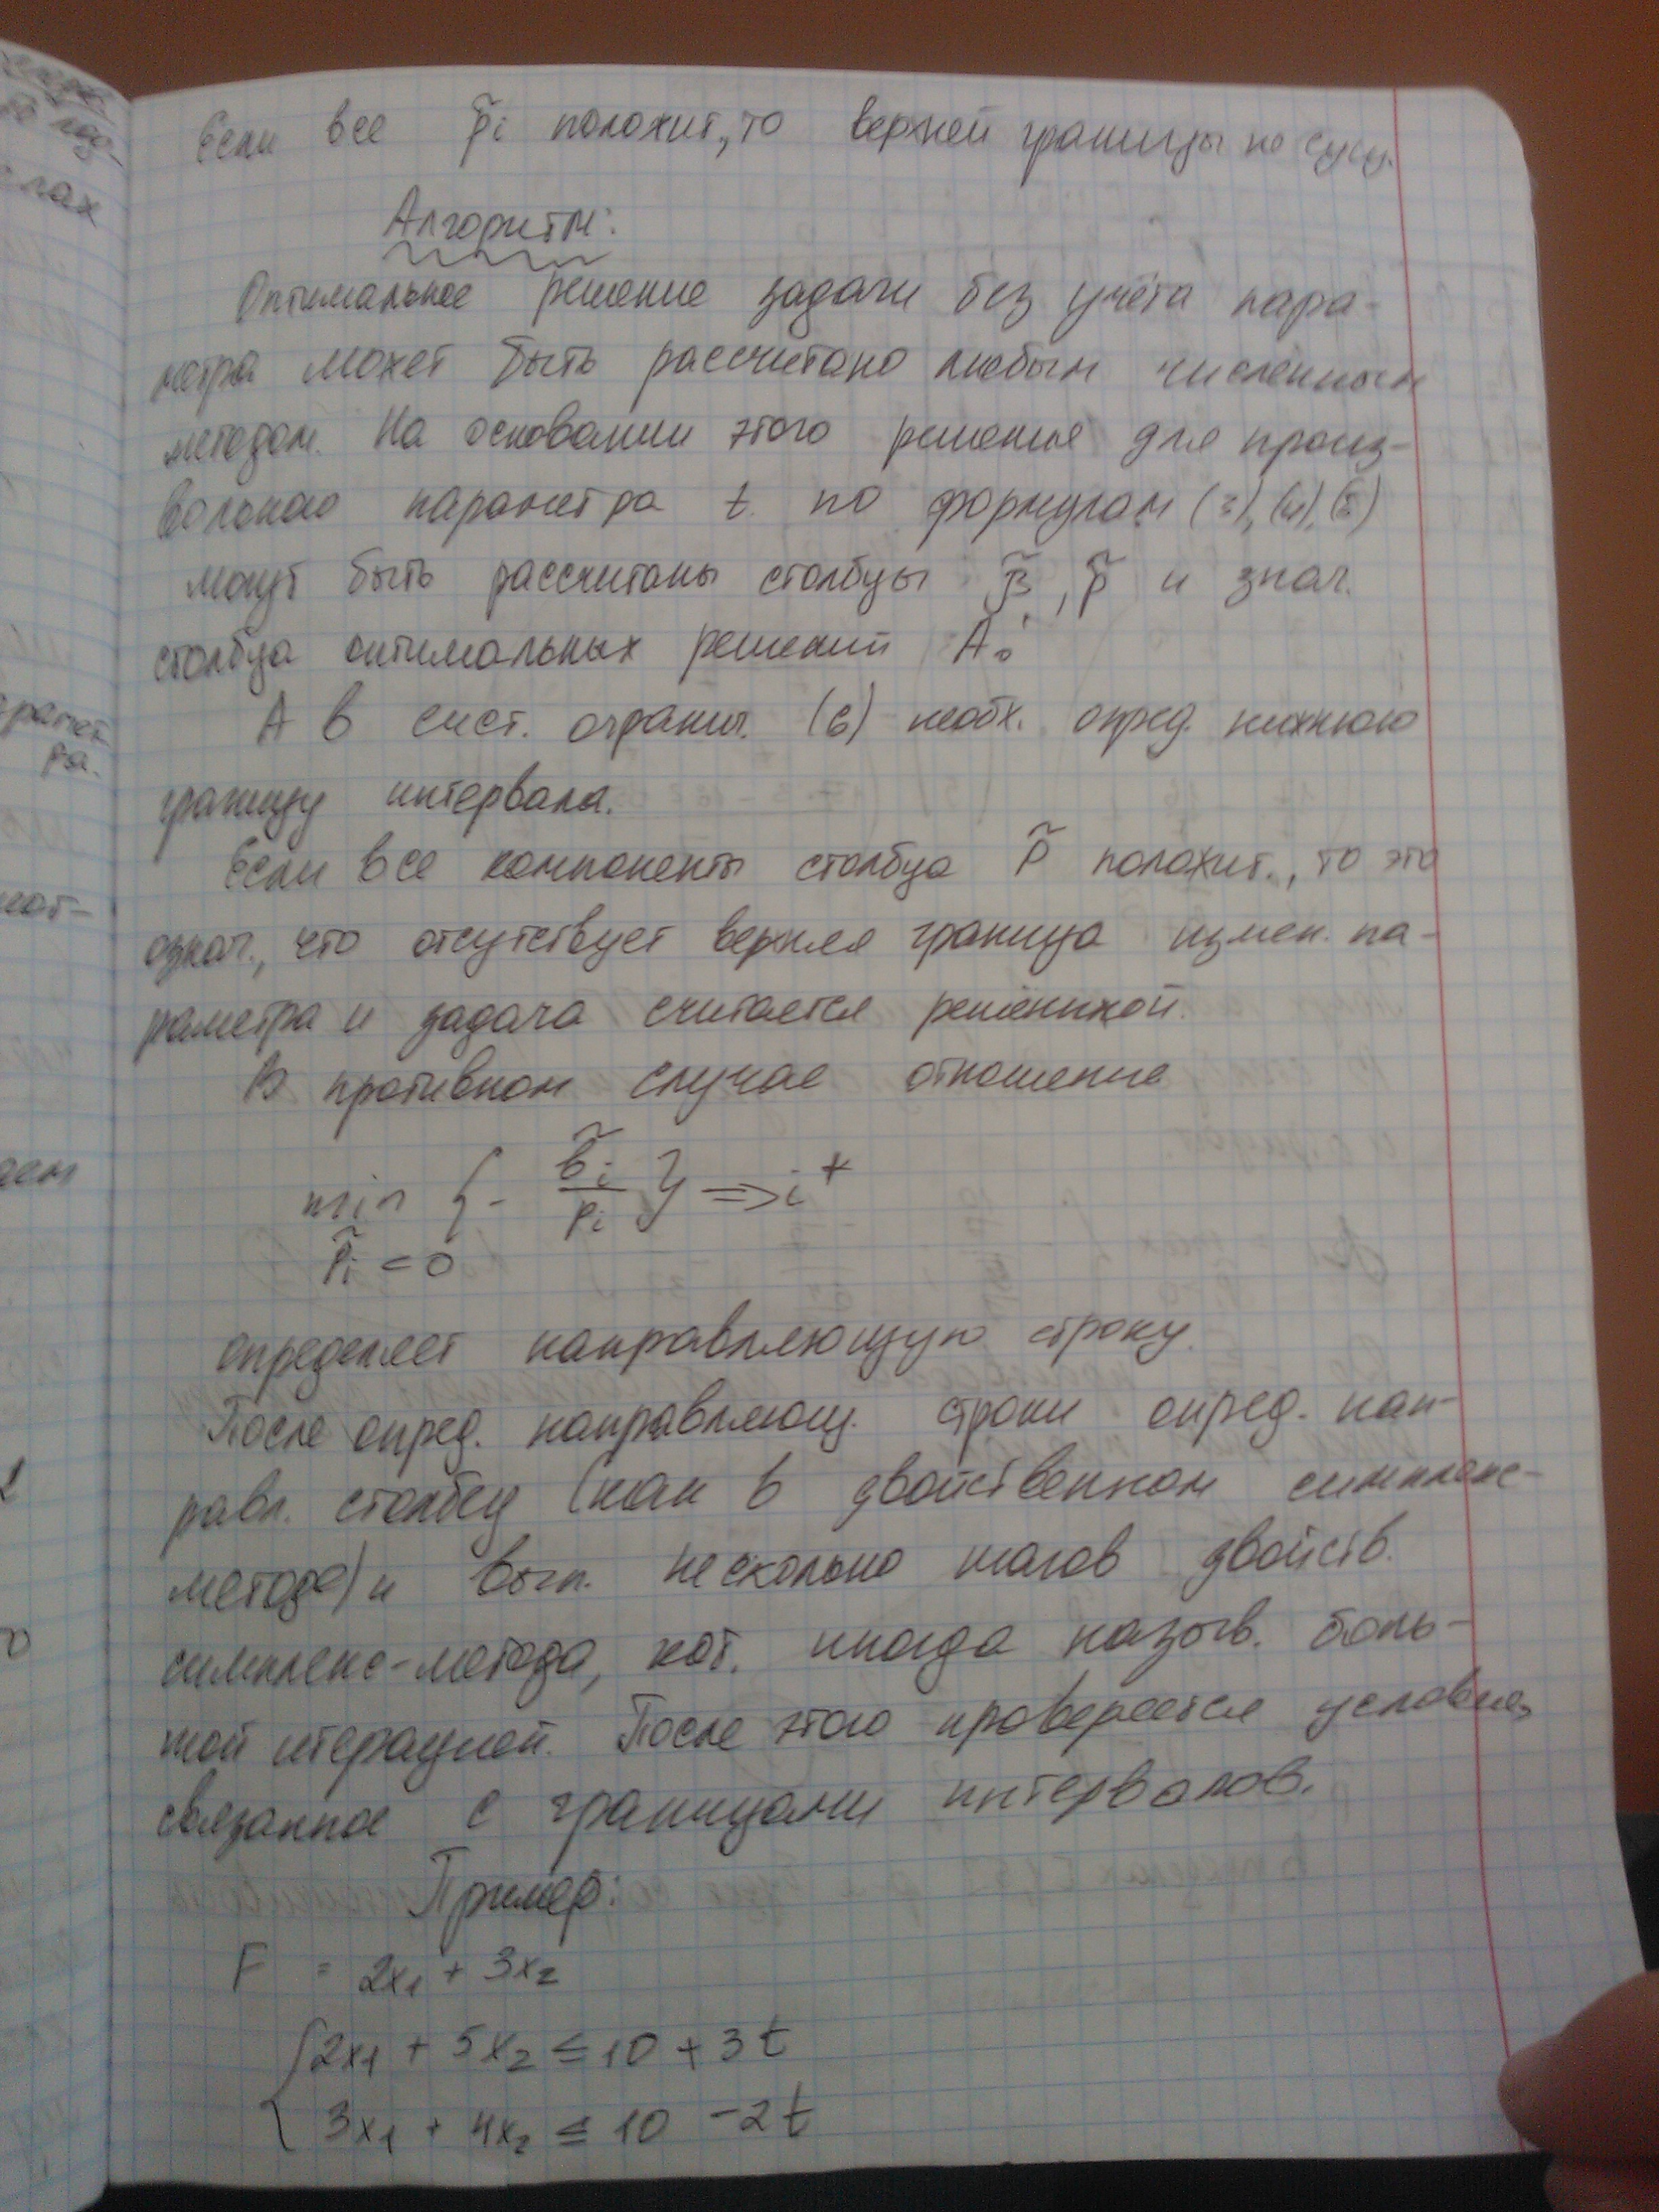 Если все p̃i положит., то верхней границы не сущ.
Алгоритм:
Оптимальное решение задачи без учёта пара-
метра может быть рассчитано любым численным
методом. На основании этого решения для произ-
вольного параметра t по формулам
могут быть рассчитаны столбцы B̃, p̃ и знач.
столбца оптимальных решений A₀
А в сист. огранич. (6) необх. опред. нижнюю
границу интервала.
Если все компоненты столбца p̃ положит., то это
означ., что отсутствует верхняя граница измен. па-
раметра и задача считается решённой.
В противном случае отношение
min { - b̃i / pi } => i*
p̃i = 0
определяет направляющую строку.
После опред. направляющ. строки опред. нап-
равл. столбец (как в двойственном симплекс-
методе) и вып. несколько шагов двойств.
симплекс-метода, кот. иногда назыв. боль-
шой итерацией. После этого проверяется условие,
связанное с границами интервалов.
Пример:
F = 2x₁ + 3x₂
{ 2x₁ + 5x₂ ≤ 10 + 3t
3x₁ + 4x₂ ≤ 10 - 2t